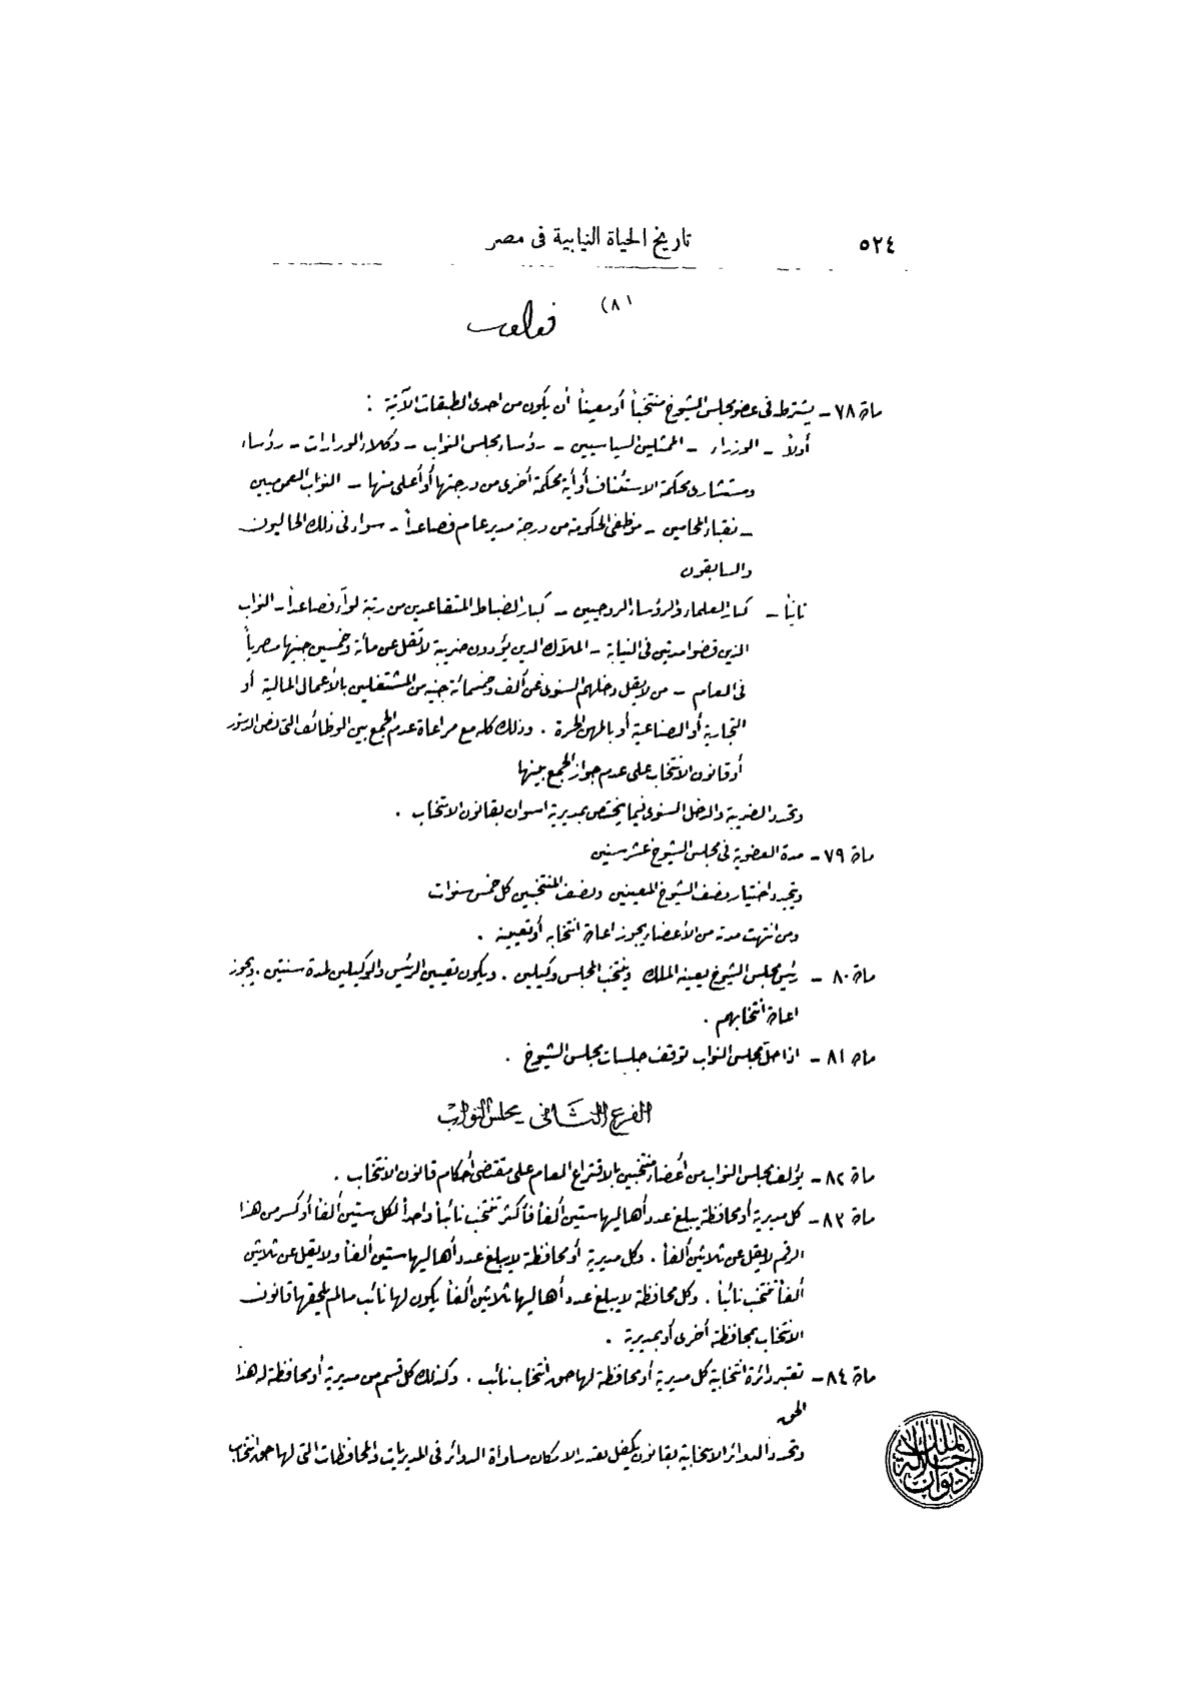 ٥٢٤ تاريخ الحياة النيابية فى مصر
(٨)
مادة ٧٨ - يشترط فى عضو مجلس الشيوخ منتخباً أو معيناً أن يكون من احدى الطبقات الآتية :
أولاً - الوزراء - الممثلين السياسيين - رؤساء مجلس النواب - وكلاء الوزارات - رؤساء
ومستشارى محكمة الاستئناف أو أية محكمة أخرى من درجتها أو أعلى منها - النواب العموميين
- نقباء المحامين - موظفى الحكومة من درجة مدير عام فصاعداً - سواء فى ذلك الحاليون
والسابقون
ثانياً - كبار العلماء والرؤساء الروحيين - كبار الضباط المتقاعدين من رتبة لواء فصاعداً - النواب
الذين قضوا مدتين فى النيابة - الملاك الذين يؤدون ضريبة لا تقل عن مائة وخمسين جنيها مصرياً
فى العام - من لا يقل دخلهم السنوى عن ألف وخمسمائة جنيه من المشتغلين بالأعمال المالية أو
التجارية أو الصناعية أو بالمهن الحرة . وذلك كله مع مراعاة عدم الجمع بين الوظائف التى نص الدستور
أو قانون الانتخاب على عدم جواز الجمع بينها
وتحدد الضريبة والدخل السنوى فيما يختص بمديرية اسوان بقانون الانتخاب .
مادة ٧٩ - مدة العضوية فى مجلس الشيوخ عشر سنين
ويتجدد اختيار نصف الشيوخ المعينين ونصف المنتخبين كل خمس سنوات
ومن انتهت مدته من الأعضاء يجوز اعادة انتخابه أو تعيينه .
مادة ٨٠ - رئيس مجلس الشيوخ يعينه الملك وينتخب المجلس وكيلين . ويكون تعيين الرئيس والوكيلين لمدة سنتين . ويجوز
اعادة انتخابهم .
مادة ٨١ - اذا حل مجلس النواب توقف جلسات مجلس الشيوخ .
الفرع الثانى - مجلس النواب
مادة ٨٢ - يؤلف مجلس النواب من أعضاء منتخبين بالاقتراع العام على مقتضى أحكام قانون الانتخاب .
مادة ٨٣ - كل مديرية أو محافظة يبلغ عدد أهاليها ستين ألفاً فأكثر تنتخب نائباً واحداً لكل ستين ألفاً أو كسر من هذا
الرقم لا يقل عن ثلاثين ألفاً . وكل مديرية أو محافظة لا يبلغ عدد أهاليها ستين ألفاً ولا يقل عن ثلاثين
ألفاً تنتخب نائباً . وكل محافظة لا يبلغ عدد أهاليها ثلاثين ألفاً يكون لها نائب ما لم يلحقها قانون
الانتخاب بمحافظة أخرى أو بمديرية .
مادة ٨٤ - تعتبر دائرة انتخابية كل مديرية أو محافظة لها حق انتخاب نائب . وكذلك كل قسم من مديرية أو محافظة له هذا
الحق
وتحدد الدوائر الانتخابية بقانون يكفل بقدر الامكان مساواة الدوائر فى المديريات والمحافظات التى لها حق انتخاب
ديوان جلالة الملك